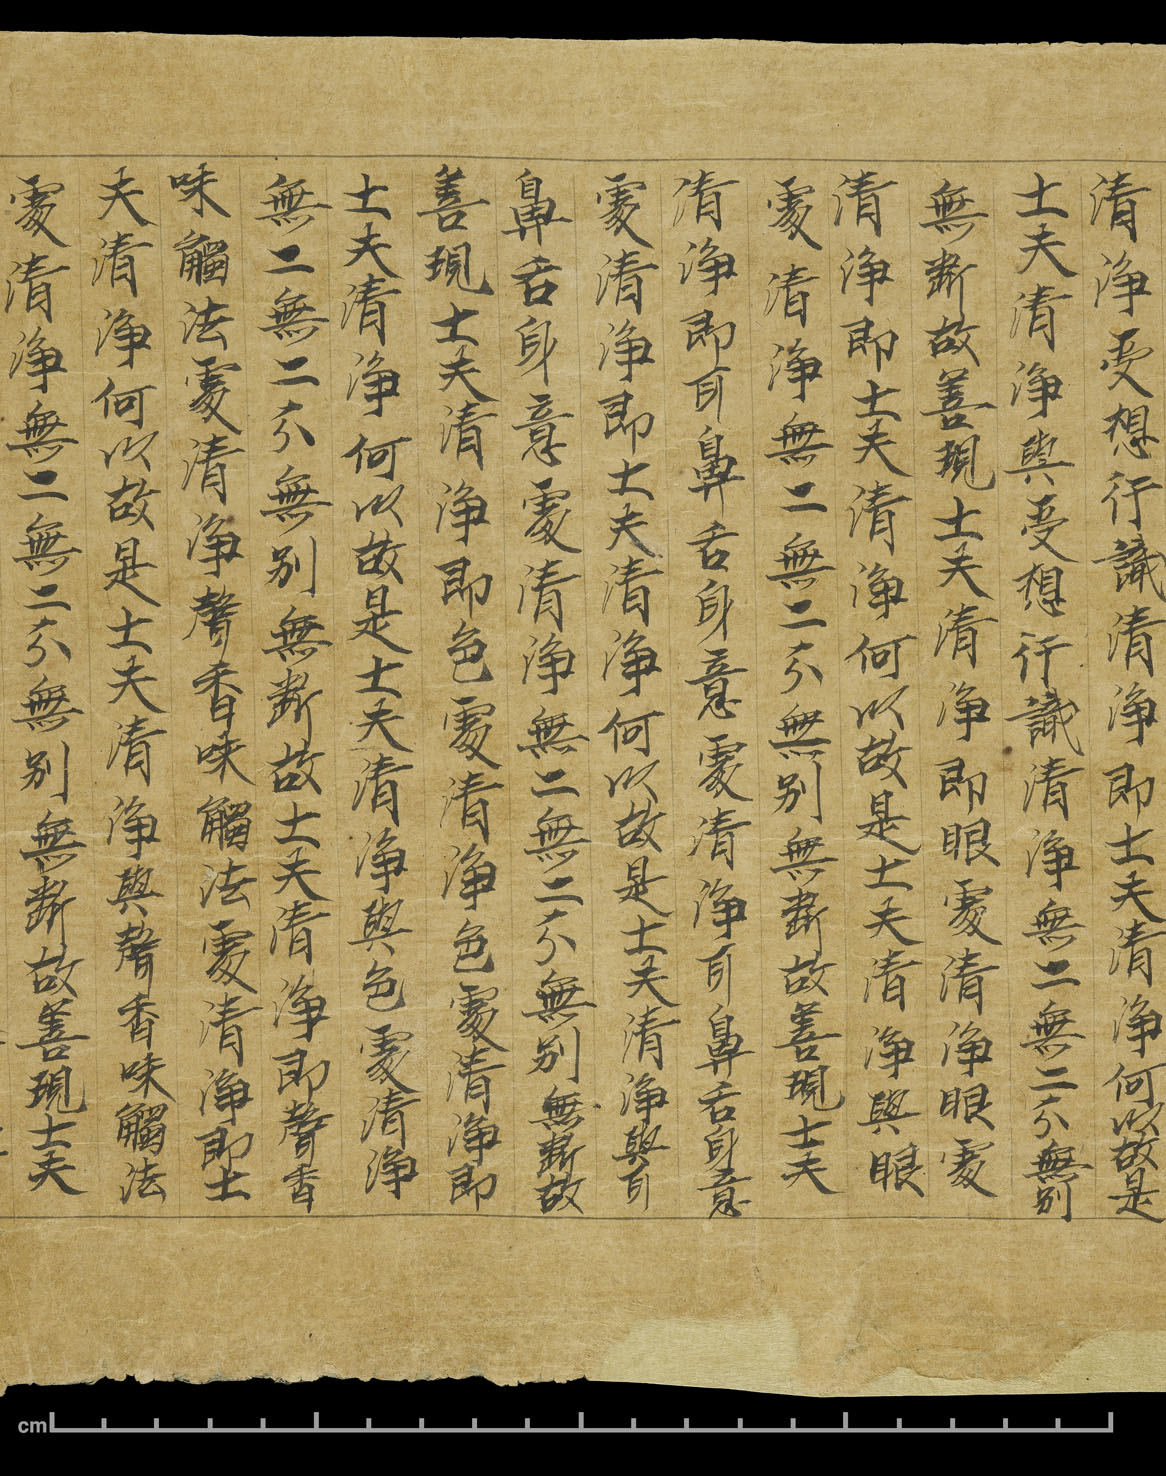 清淨受想行識清淨即士夫清淨何以故是
士夫清淨與受想行識清淨無二無二分無別
無斷故善現士夫清淨即眼處清淨眼處
清淨即士夫清淨何以故是士夫清淨與眼
處清淨無二無二分無別無斷故善現士夫
清淨即耳鼻舌身意處清淨耳鼻舌身意
處清淨即士夫清淨何以故是士夫清淨與耳
鼻舌身意處清淨無二無二分無別無斷故
善現士夫清淨即色處清淨色處清淨即
士夫清淨何以故是士夫清淨與色處清淨
無二無二分無別無斷故士夫清淨即聲香
味觸法處清淨聲香味觸法處清淨即士
夫清淨何以故是士夫清淨與聲香味觸法
處清淨無二無二分無別無斷故善現士夫